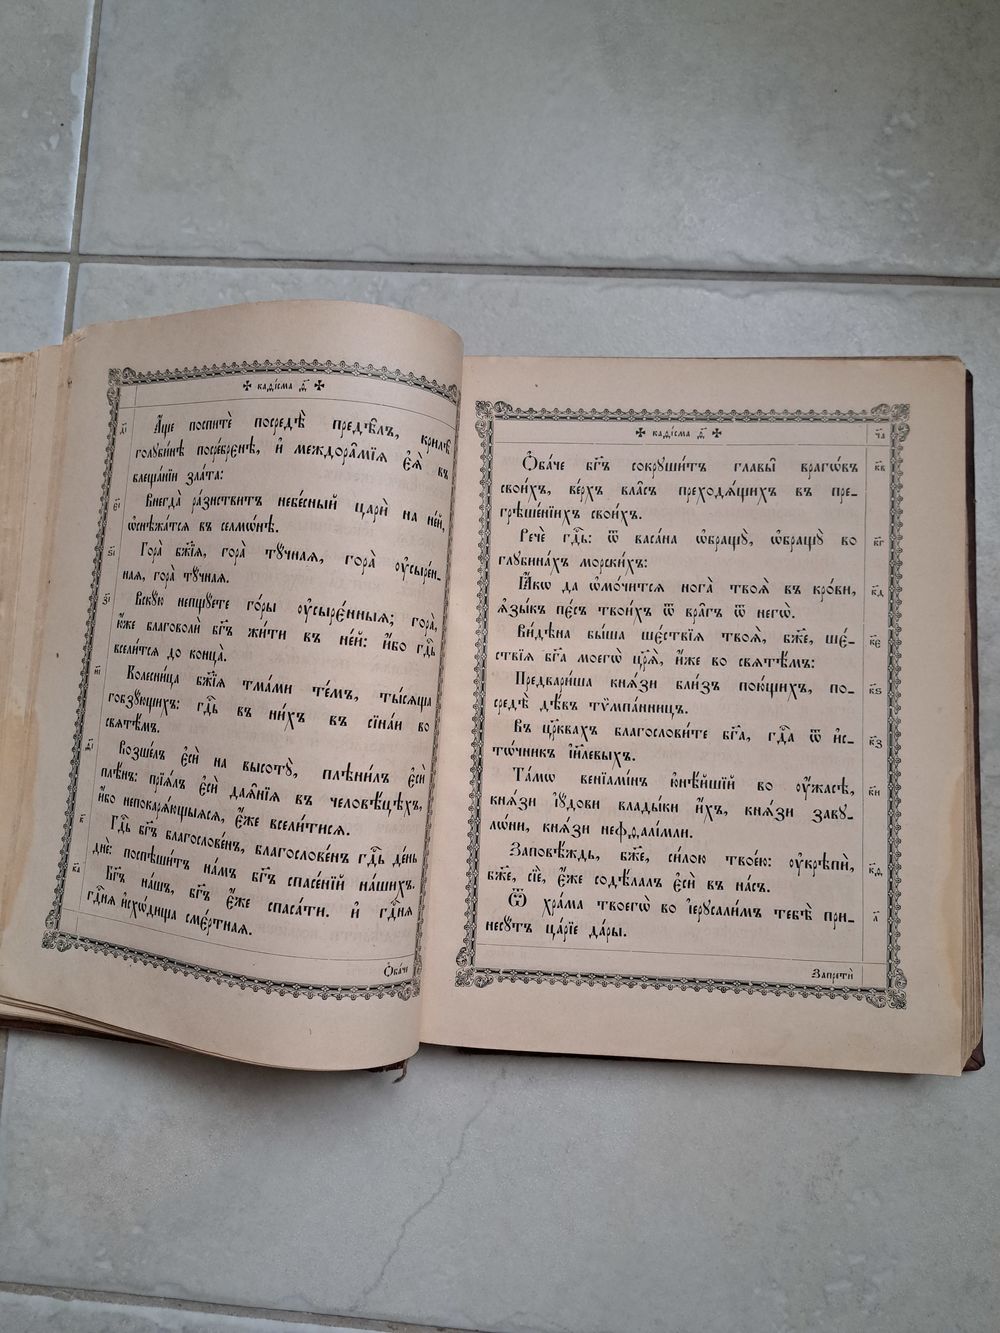 ✠ каѳі́сма д҃ ✠
д҃і
А҆́ще поспитѐ посредѣ̀ предѣ̑лъ, крилѣ̀
голꙋби́нѣ посре́бренѣ, и҆ междора̑мїѧ є҆ѧ̀ въ
блеща́нїи зла́та:
є҃і
Внегда̀ ра́знствитъ небе́сный цари̑ на не́й,
ѡ҆снѣжа́тсѧ въ селмѡ́нѣ.
ѕ҃і
Гора̀ бж҃їѧ, гора̀ тꙋ́чнаѧ, гора̀ ᲂу҆сыре́н-
наѧ, гора̀ тꙋ́чнаѧ.
з҃і
Вскꙋ́ю непщꙋ́ете го́ры ᲂу҆сырє́нныѧ; гора̀,
ю҆́же благоволѝ бг҃ъ жи́ти въ не́й: и҆́бо гдⷭ҇ь
всели́тсѧ до конца̀.
и҃і
Колесни́ца бж҃їѧ тма́ми те́мъ, ты́сѧща
гобзꙋ́ющихъ: гдⷭ҇ь въ ни́хъ въ сїна́и во
свѧтѣ́мъ.
ѳ҃і
Возше́лъ є҆сѝ на высотꙋ̀, плѣни́лъ є҆сѝ
плѣ́нъ: прїѧ́лъ є҆сѝ даѧ̑нїѧ въ человѣ́цѣхъ,
и҆́бо непокарѧ́ющыѧсѧ, є҆́же всели́тисѧ.
к҃
Гдⷭ҇ь бг҃ъ благослове́нъ, благослове́нъ гдⷭ҇ь де́нь
днѐ: поспѣши́тъ на́мъ бг҃ъ спасе́нїй на́шихъ.
к҃а
Бг҃ъ на́шъ, бг҃ъ є҆́же спаса́ти. и҆ гдⷭ҇нѧ
гдⷭ҇нѧ и҆схѡ́дища смє́ртнаѧ.
Ѻ҆ба́че
✠ каѳі́сма д҃ ✠
ч҃а
к҃в
Ѻ҆ба́че бг҃ъ сокрꙋши́тъ главы̑ врагѡ́въ
свои́хъ, ве́рхъ вла́съ преходѧ́щихъ въ пре-
грѣше́нїихъ свои́хъ.
к҃г
Речѐ гдⷭ҇ь: ѿ васа́на ѡ҆бращꙋ̀, ѡ҆бращꙋ̀ во
глꙋбина́хъ морски́хъ:
к҃д
Ꙗ҆́кѡ да ѡ҆мо́читсѧ нога̀ твоѧ̀ въ кро́ви,
ѧ҆зы́къ пє́съ твои́хъ ѿ вра̑гъ ѿ негѡ̀.
к҃є
Ви̑дѣна бы́ша шє́ствїѧ твоѧ̑, бж҃е, шє́-
ствїѧ бг҃а моегѡ̀ цр҃ѧ̀, и҆́же во свѧтѣ́мъ:
к҃ѕ
Предвари́ша кнѧ̑зи бли́зъ пою́щихъ, по-
средѣ̀ дѣ́въ тѷмпа́нницъ.
к҃з
Въ цр҃квахъ благослови́те бг҃а, гдⷭ҇а ѿ и҆сто-
тѡ́чникъ і҆и҃левыхъ.
к҃и
Та́мѡ венїамі́нъ ю҆нѣ́йшїй во ᲂу҆́жасѣ,
кнѧ̑зи і҆ꙋ́дѡвы влады̑ки и҆́хъ, кнѧ̑зи завꙋ-
лѡ́ни, кнѧ̑зи нефѳалі́мли.
к҃ѳ
Заповѣ́ждь, бж҃е, си́лою твое́ю: ᲂу҆крѣпѝ,
бж҃е, сїѐ, є҆́же содѣ́лалъ є҆сѝ въ на́съ.
л҃
Ѿ хра́ма твоегѡ̀ во і҆ерⷭ҇али́мъ тебѣ̀ при-
несꙋ́тъ ца́рїе да́ры.
Запретѝ